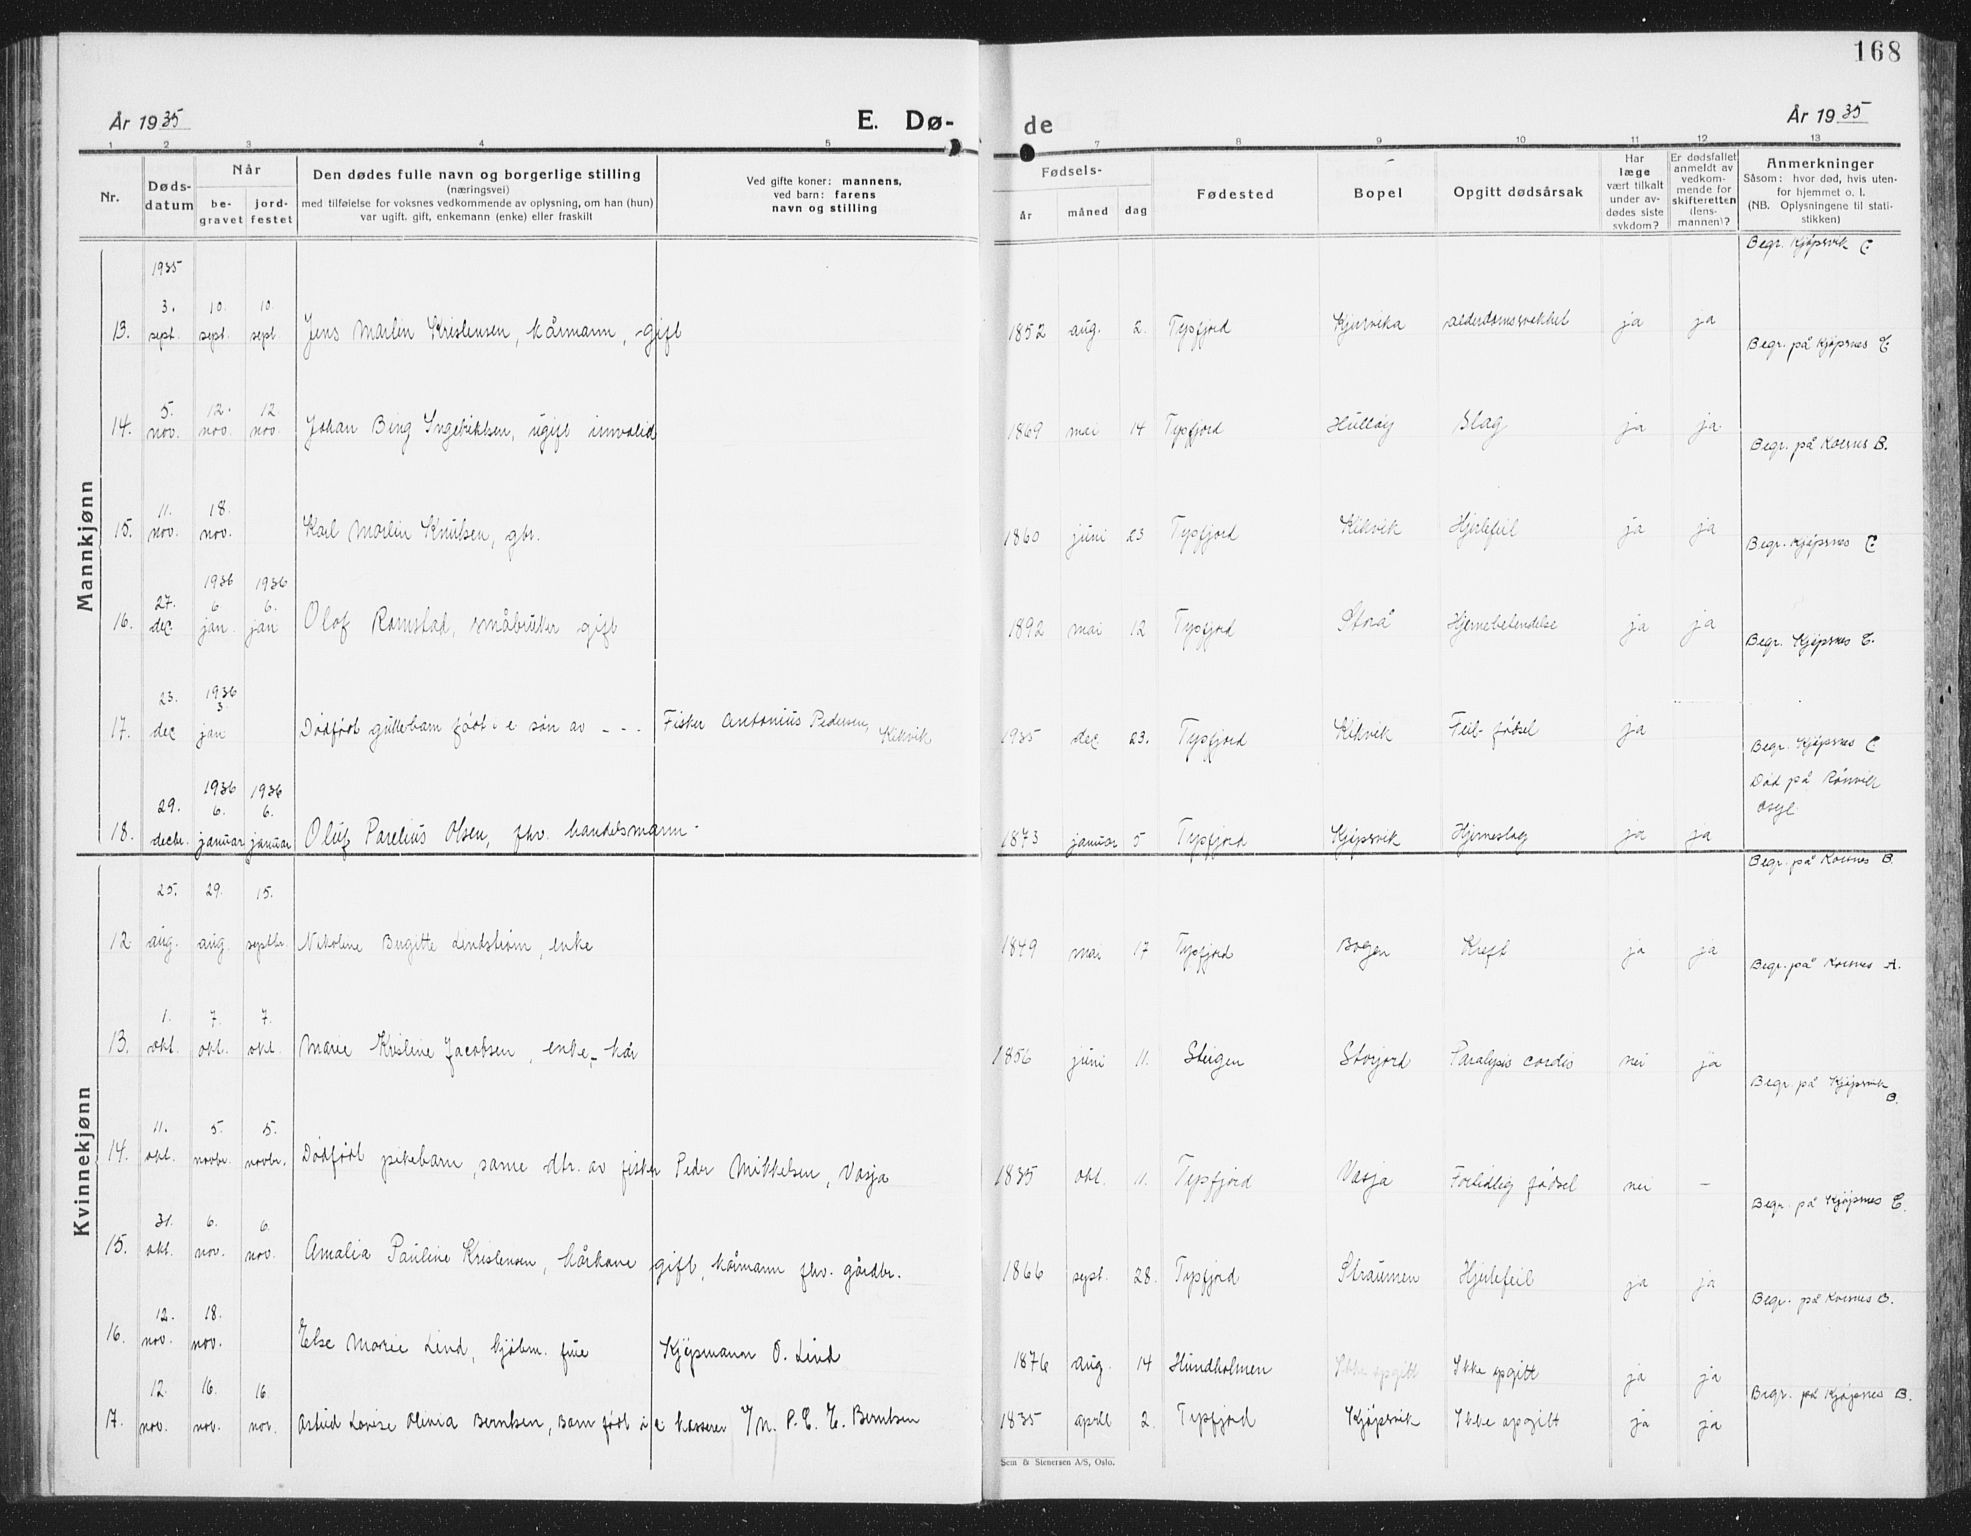 168
År 1935 E. Dø- de År 1935
1 2 3 4 5 7 8 9 10 11 12 13
Nr. Døds-datum Når be-gravet jord-festet Den dødes fulle navn og borgerlige stilling (næringsvei) med tilføielse for voksnes vedkommende av oplysning, om han (hun) var ugift, gift, enkemann (enke) eller fraskilt Ved gifte koner: mannens, ved barn: farens navn og stilling Fødsels- år måned dag Fødested Bopel Opgitt dødsårsak Har læge vært tilkalt under av-dødes siste sykdom? Er dødsfallet anmeldt av vedkom-mende for skifteretten (lens-mannen)? Anmerkninger Såsom: hvor død, hvis uten-for hjemmet o. l. (NB. Oplysningene til stati-stikken)
Mannkjønn
1935
13. 3. sept. 10. sept. 10. sept. Jens Martin Kristensen, kårmann, gift 1852 aug. 2. Tysfjord alderdomssvekkel ja ja Begr. Kjöpsvik C
14. 5. nov. 12. nov. 12. nov. Johan Bing Ingebriktsen, ugift invalid 1869 mai 14 Tysfjord Hulløy Slag ja ja Begr. på Kjöpsnes C
15. 11. nov. 18. nov. Karl Martin Knutsen, gbr. 1860 juni 23 Tysfjord Kikvik Hjertefeil ja ja Begr. på Korsnes B.
16. 27. dec 1936 6. jan. 1936 6. jan Olof Ramstad, småbruker gift 1892 mai 12 Tysfjord Storå Hjernebetendelse ja ja Begr. Kjöpsnes C
17. 23. dec 1936 3. jan Dødfødt guttebarn født i e søn av - - - Fisker Antonius Pedersen, Kikvik 1935 dec 23. Tysfjord Kikvik Feil fødsel ja Begr. Kjöpsnes C.
18. 29. decbr. 1936 6. januar 1936 6. januar Oluf Parelius Olsen, fhv. handelsmann - 1873 januar 5 Tysfjord Kjöpsvik Hjerneslag ja ja Begr. Kjöpsnes C Død på Rönvik asyl
Kvinnekjønn
12 25. aug. 29. aug. 15. septbr. Nikoline Birgitte Lindstrøm, enke 1849 mai 17 Tysfjord Bogen Kreft ja ja Begr. på Korsnes B.
13. 1. okt. 7. okt. 7. okt. Marie Kristine Jacobsen, enke, kår 1856 juni 11. Steigen Storjord Paralysis cordis nei ja Begr. på Korsnes A.
14. 11. okt. 5. novbr. 5. novbr. Dødfødt pikebarn, same dtr. av fisker Peder Mikkelsen, Vasja 1835 okt. 11. Tysfjord Vasja Fortidlig fødsel nei - Begr. på Kjöpsvik B.
15. 31. okt. 6. nov. 6. nov. Amalia Pauline Kristensen, kårkone gift, kårmann fhv. gårdbr. 1866 sept. 28. Tysfjord Straumen Hjertefeil ja ja Begr. på Kjöpsnes C.
16. 12. nov. 18. nov. Else Marie Lind, kjøbm. frue Kjøpmann O. Lind 1876 aug. 14 Hundholmen Ikke opgitt Ikke opgitt ja ja Begr. på Korsnes B.
17. 12. nov. 16. nov. 16 nov. Astrid Lovise Olivia Berntsen, Barn født i e kasserer P. E. E. Berntsen 1835 april 2. Tysfjord Kjöpsvik Ikke opgitt ja ja Begr. på Kjöpsnes B.
Sem & Stenersen A/S, Oslo.